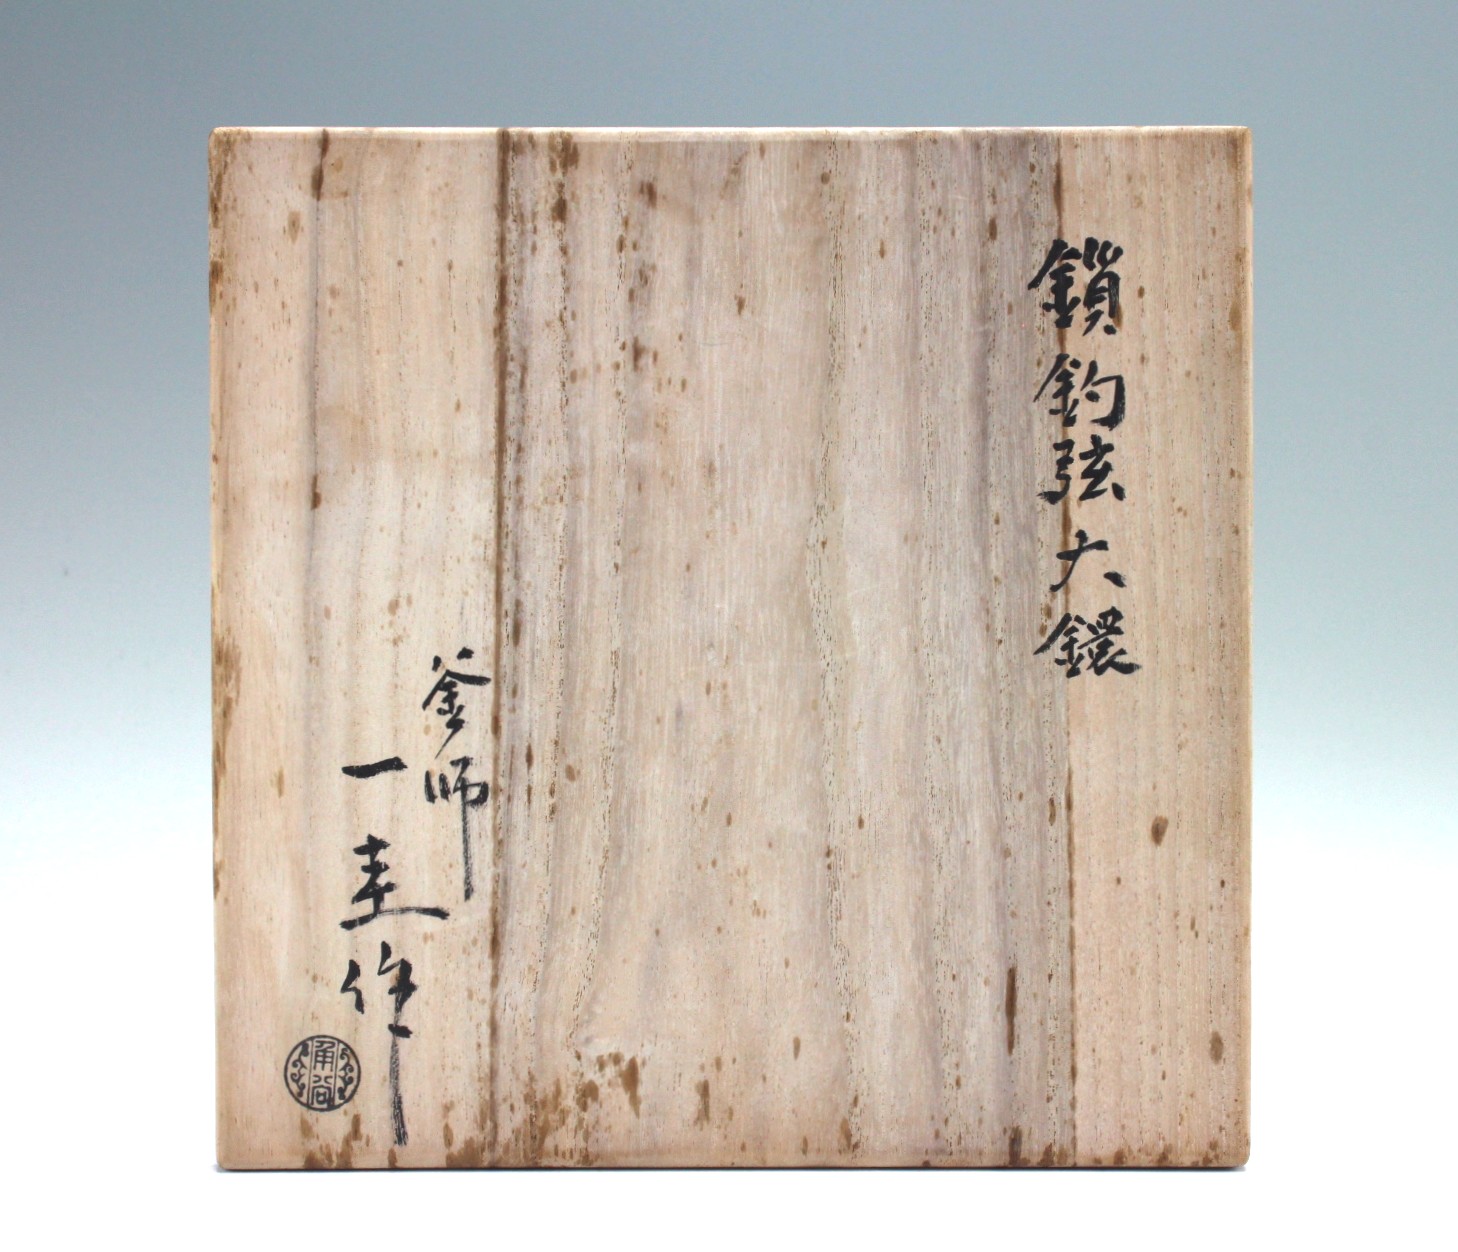 鎖釣弦大鐶
釜師
一圭作
角谷